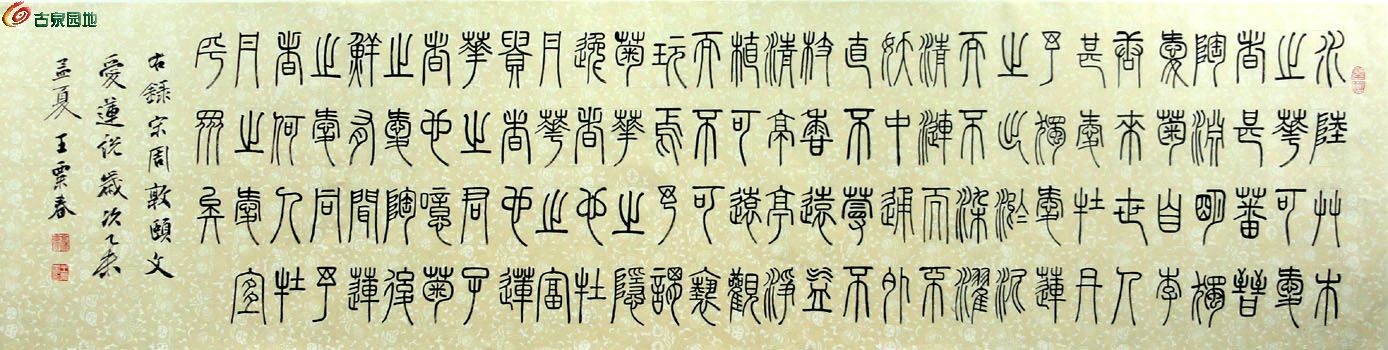 古泉园地
水陸艸木
之華可愛
者甚蕃晉
陶淵明獨
愛菊自李
唐來世人
甚愛牡丹
予獨愛蓮
之出淤泥
而不染濯
清漣而不
妖中通外
直不蔓不
枝香遠益
清亭亭淨
植可遠觀
而不可褻
玩焉予謂
菊華之隱
逸者也牡
丹華之富
貴者也蓮
華之君子
者也噫菊
之愛陶後
鮮有聞蓮
之愛同予
者何人牡
丹之愛宜
乎眾矣
右錄宋周敦頤文
愛蓮說歲次乙未
孟夏 王春